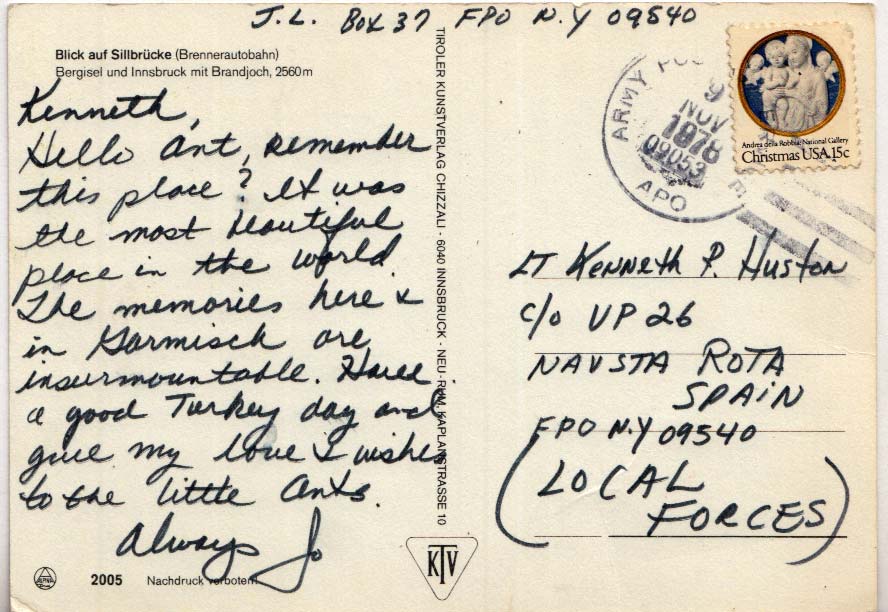 J.L. Box 37 FPO N.Y 09540
Blick auf Sillbrücke (Brennerautobahn)
Bergisel und Innsbruck mit Brandjoch, 2560m
Kenneth,
Hello Ant, remember
this place? It was
the most beautiful
place in the world.
The memories here &
in Garmisch are
insurmountable. Have
a good Turkey day and
give my love & wishes
to the little Ants.
Always Jo
2005 Nachdruck verboten!
TIROLER KUNSTVERLAG CHIZZALI · 6040 INNSBRUCK - NEU-RUM, KAPLANSTRASSE 10
KTV
ARMY
9
NOV
1978
09053
APO
Andrea della Robbia: National Gallery
Christmas USA 15c
LT Kenneth P. Huston
c/o VP 26
NAVSTA ROTA
SPAIN
FPO N.Y 09540
(LOCAL
FORCES)